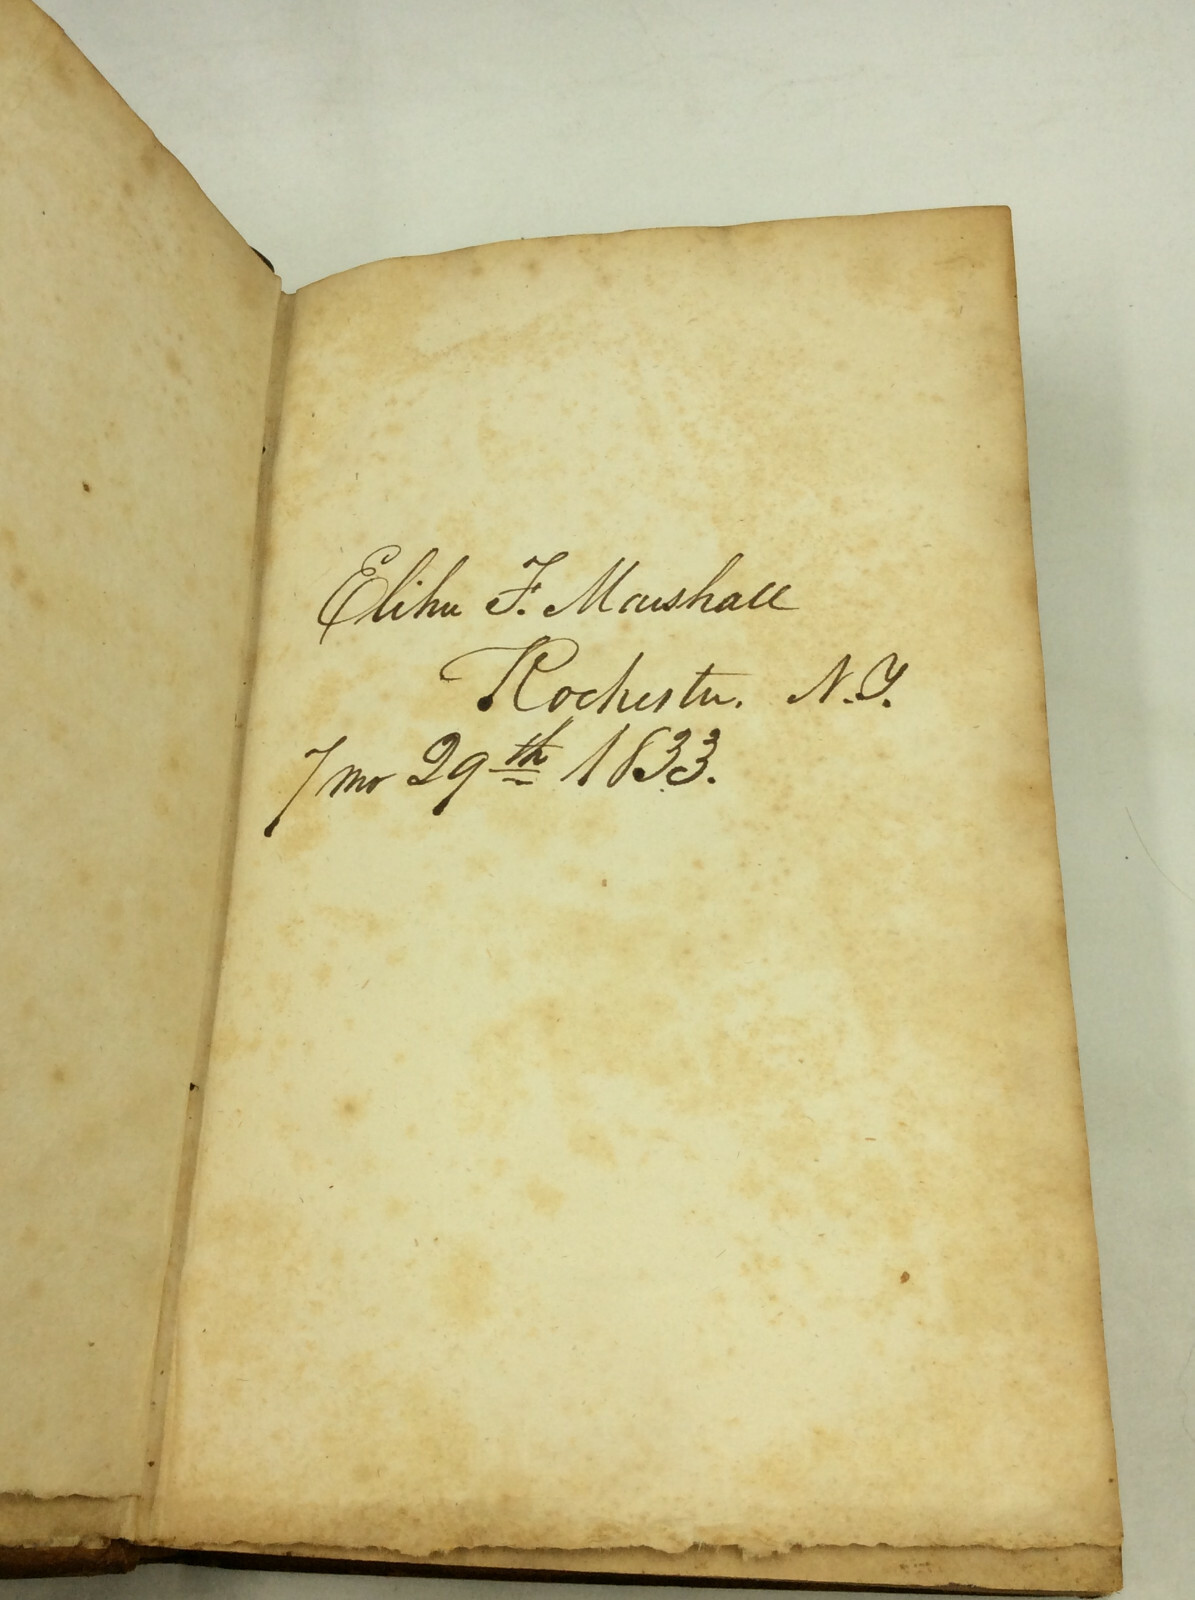 Elihu F. Marshall
Rochester. N.Y.
7 mo 29th 1833.